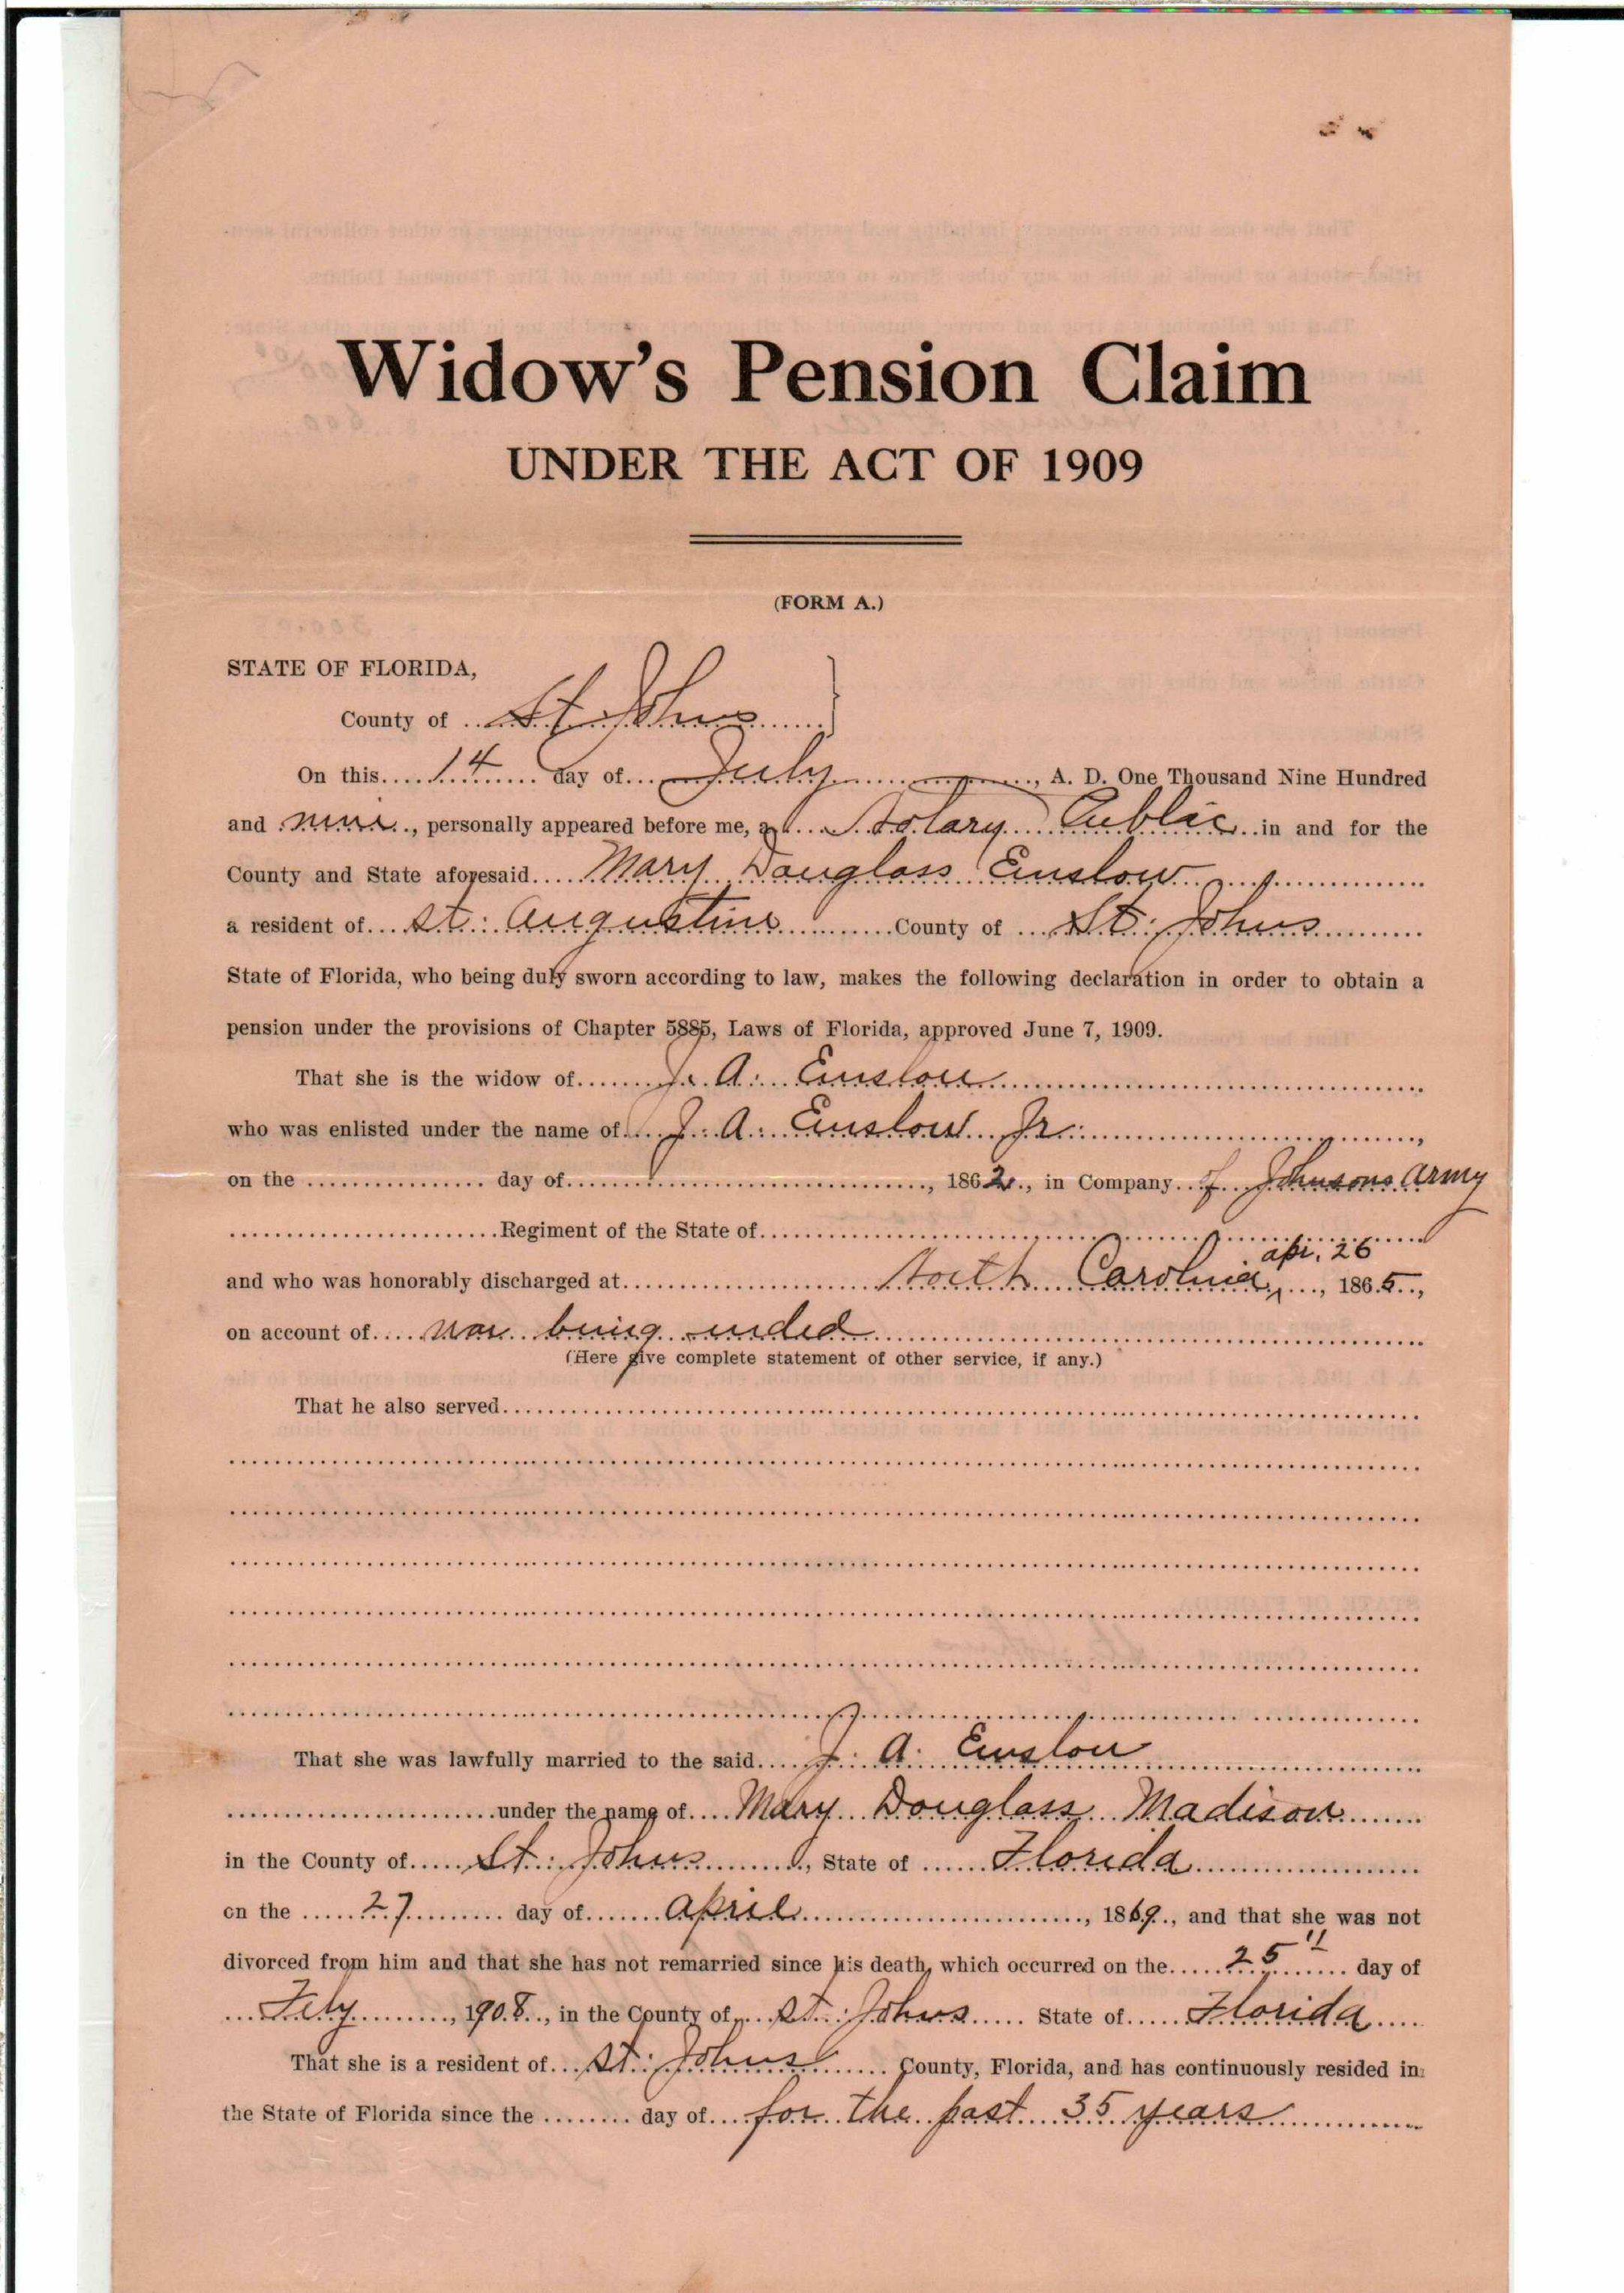 Widow's Pension Claim
UNDER THE ACT OF 1909
(FORM A.)
STATE OF FLORIDA,
County of St. Johns
On this 14 day of July, A. D. One Thousand Nine Hundred
and nine, personally appeared before me, a Notary Public in and for the
County and State aforesaid Mary Douglass Emslow
a resident of St. Augustine County of St. Johns
State of Florida, who being duly sworn according to law, makes the following declaration in order to obtain a
pension under the provisions of Chapter 5885, Laws of Florida, approved June 7, 1909.
That she is the widow of J. A. Emslow
who was enlisted under the name of J. A. Emslow Jr.
on the day of, 1862, in Company of Johnsons Army
Regiment of the State of
apr. 26
and who was honorably discharged at North Carolina, 1865,
on account of war being ended
(Here give complete statement of other service, if any.)
That he also served
That she was lawfully married to the said J. A. Emslow
under the name of Mary Douglass Madison
in the County of St. Johns, State of Florida
on the 27 day of April, 1869, and that she was not
divorced from him and that she has not remarried since his death, which occurred on the 25 day of
1908, in the County of St. Johns State of Florida
That she is a resident of St. Johns County, Florida, and has continuously resided in
the State of Florida since the day of for the past 35 years